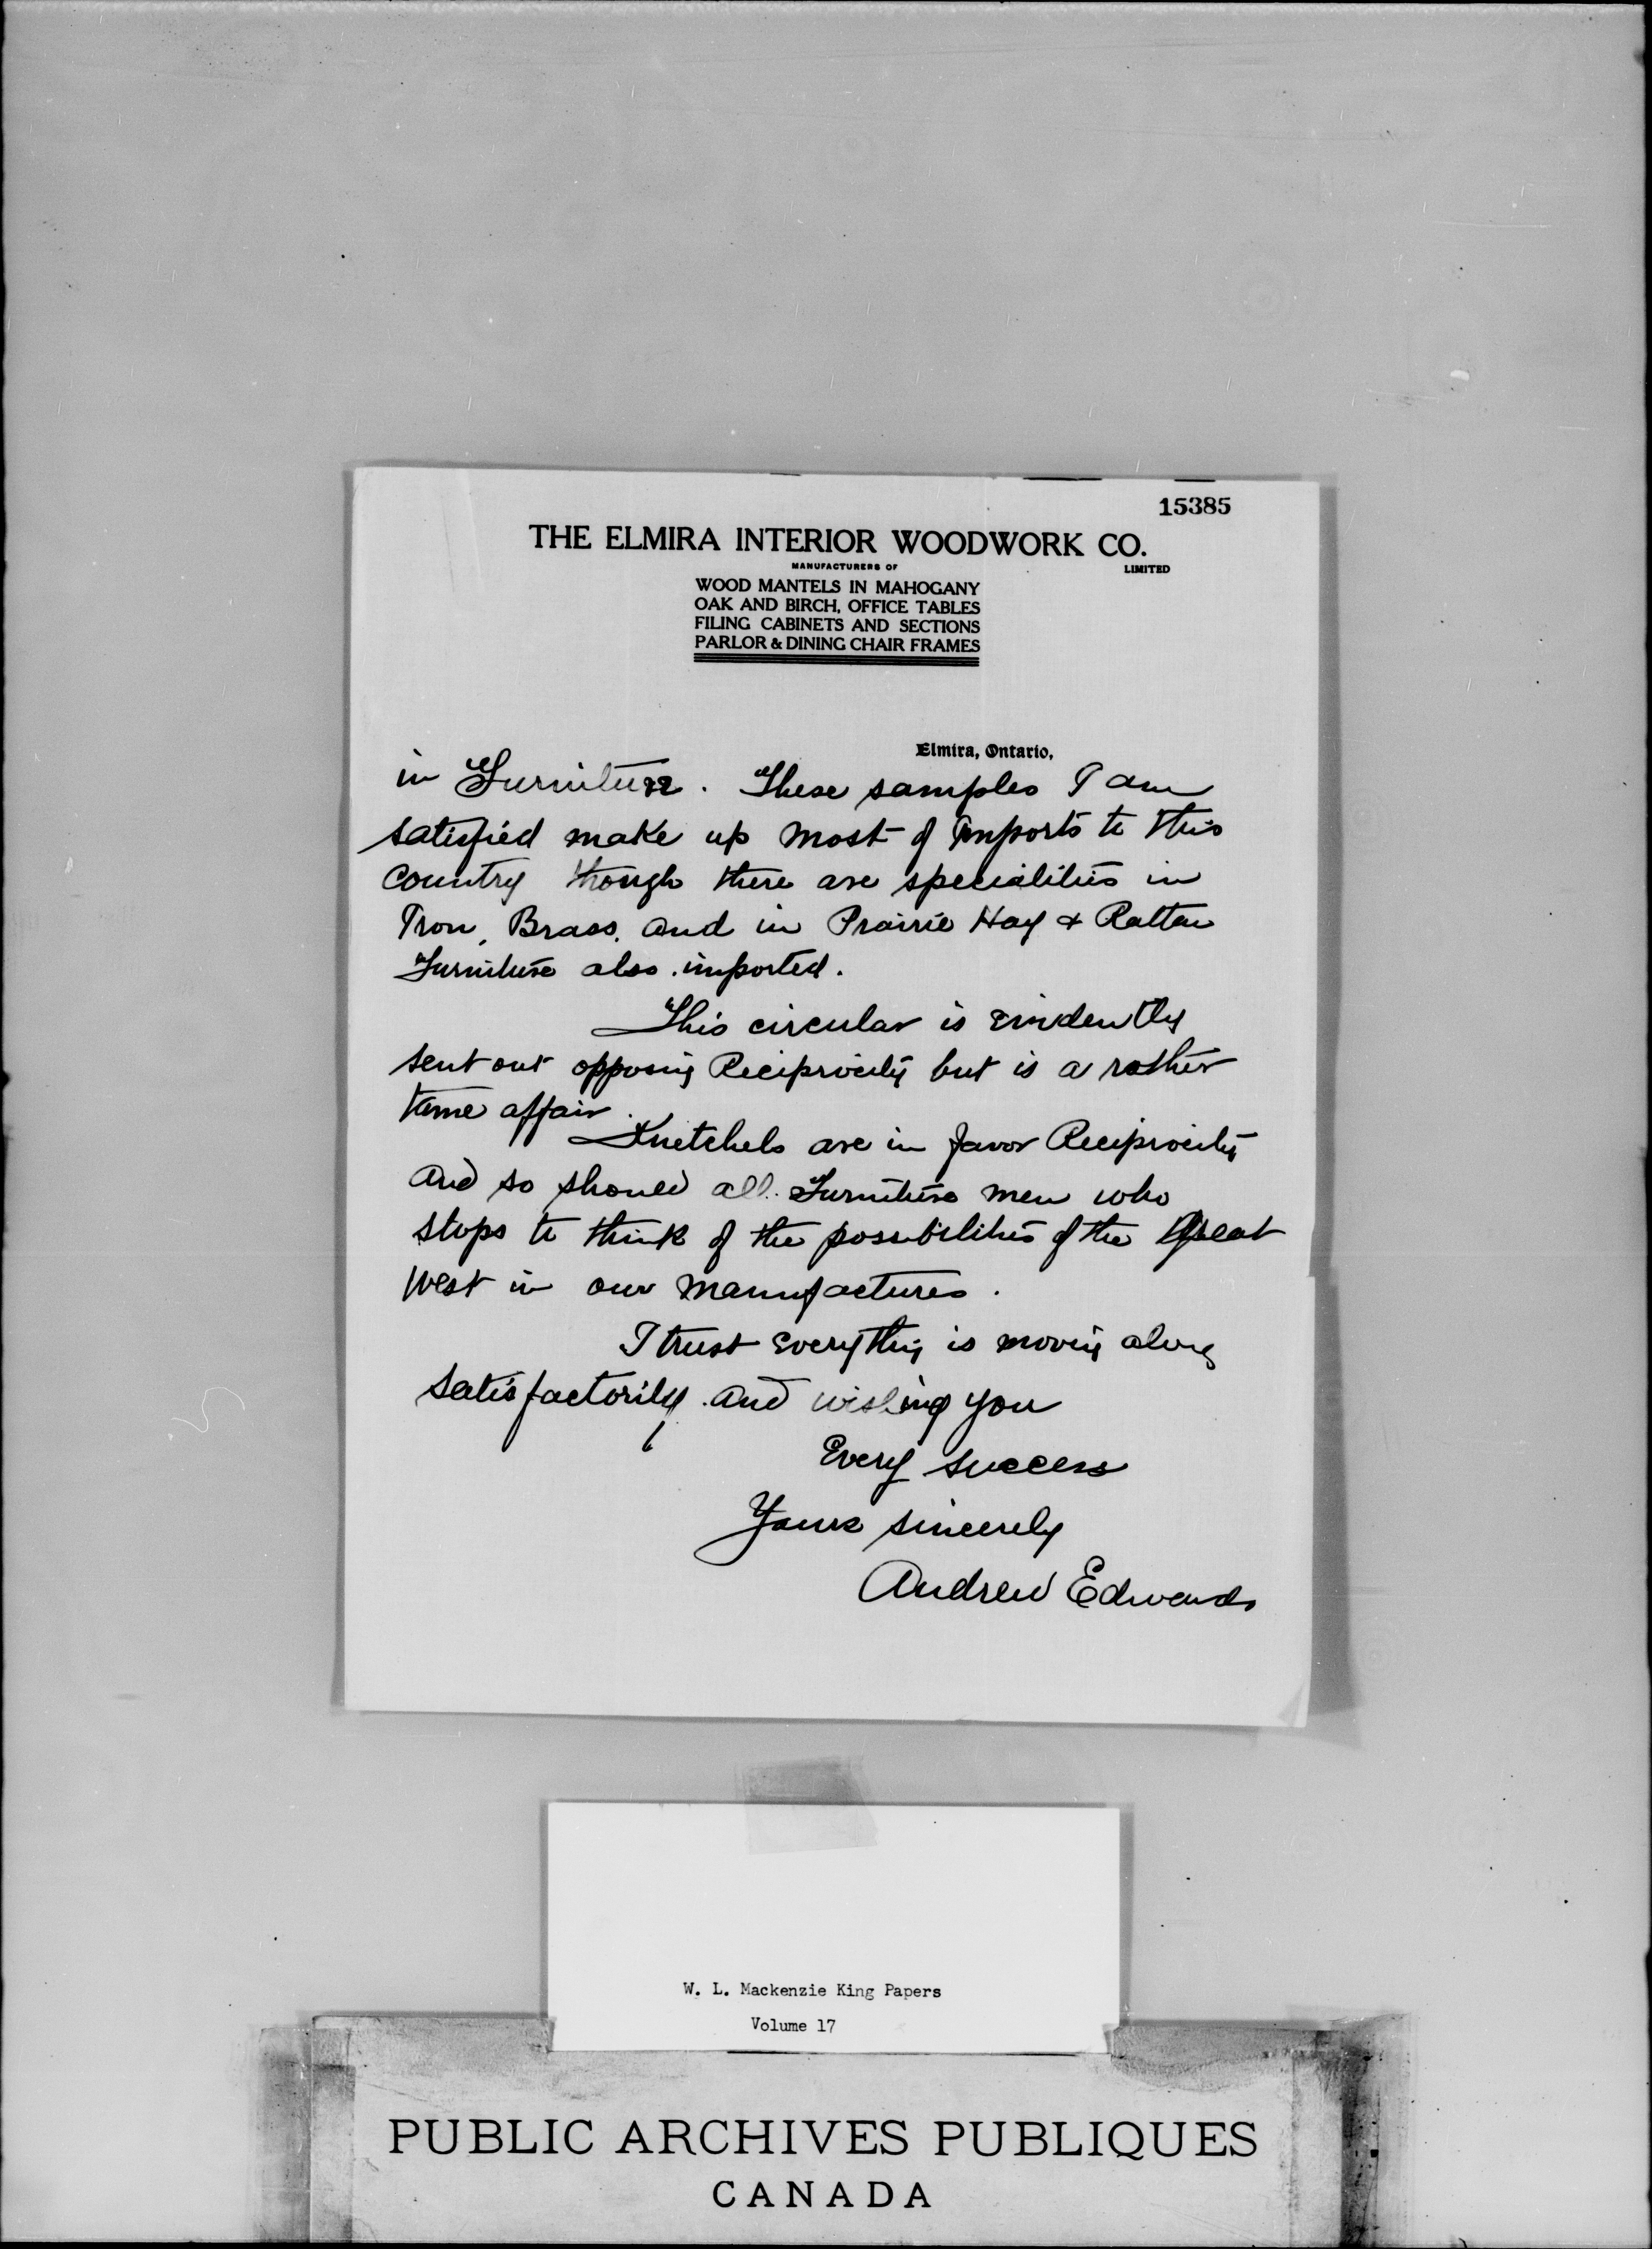 15385
THE ELMIRA INTERIOR WOODWORK CO.
LIMITED
MANUFACTURERS OF
WOOD MANTELS IN MAHOGANY
OAK AND BIRCH, OFFICE TABLES
FILING CABINETS AND SECTIONS
PARLOR & DINING CHAIR FRAMES
Elmira, Ontario,
in Furniture. These samples I am
satisfied make up most of imports to this
country though there are specialities in
Iron, Brass, and in Prairie Hay & Rattan
Furniture also imported.
This circular is evidently
sent out opposing Reciprocity but is a rather
tame affair.
Knetchels are in favor Reciprocity
and so should all Furniture men who
stops to think of the possibilities of the Great
West in our manufactures.
I trust everything is moving along
satisfactorily and wishing you
Every success
Yours sincerely
Andrew Edwards
W. L. Mackenzie King Papers
Volume 17
PUBLIC ARCHIVES PUBLIQUES
CANADA